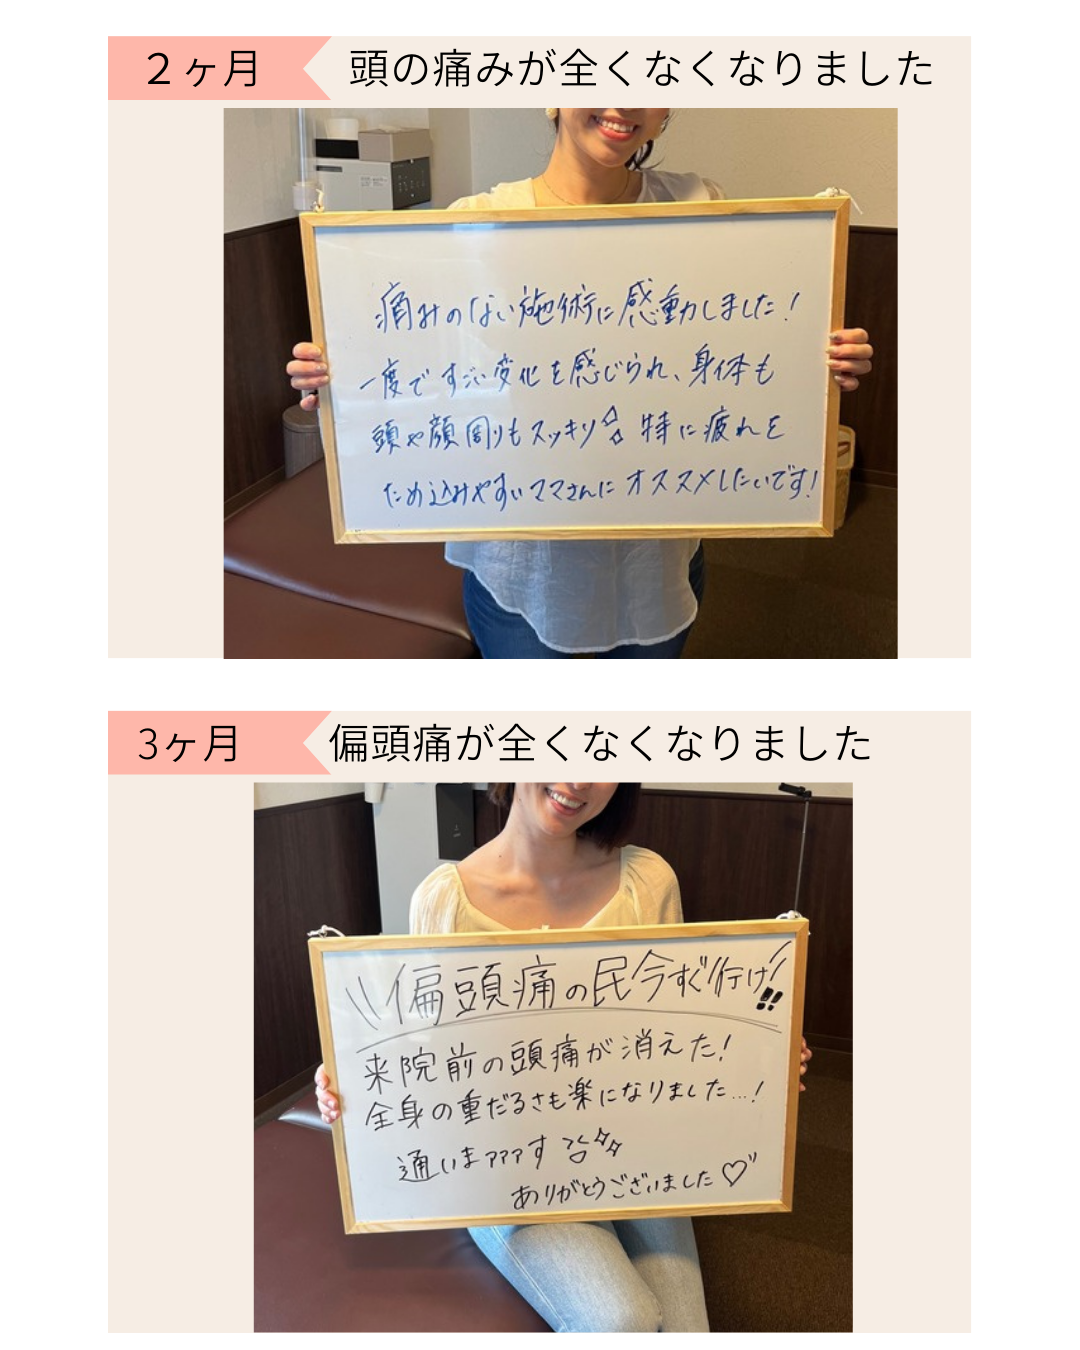 ２ヶ月
頭の痛みが全くなくなりました
痛みのない施術に感動しました！
一度ですごい変化を感じられ、身体も
頭や顔周りもスッキリ 特に疲れを
ため込みやすいママさんにオススメしたいです！
3ヶ月
偏頭痛が全くなくなりました
\\偏頭痛の民今すぐ行け//!!
来院前の頭痛が消えた！
全身の重だるさも楽になりました…！
通いまァァァす
ありがとうございました♡